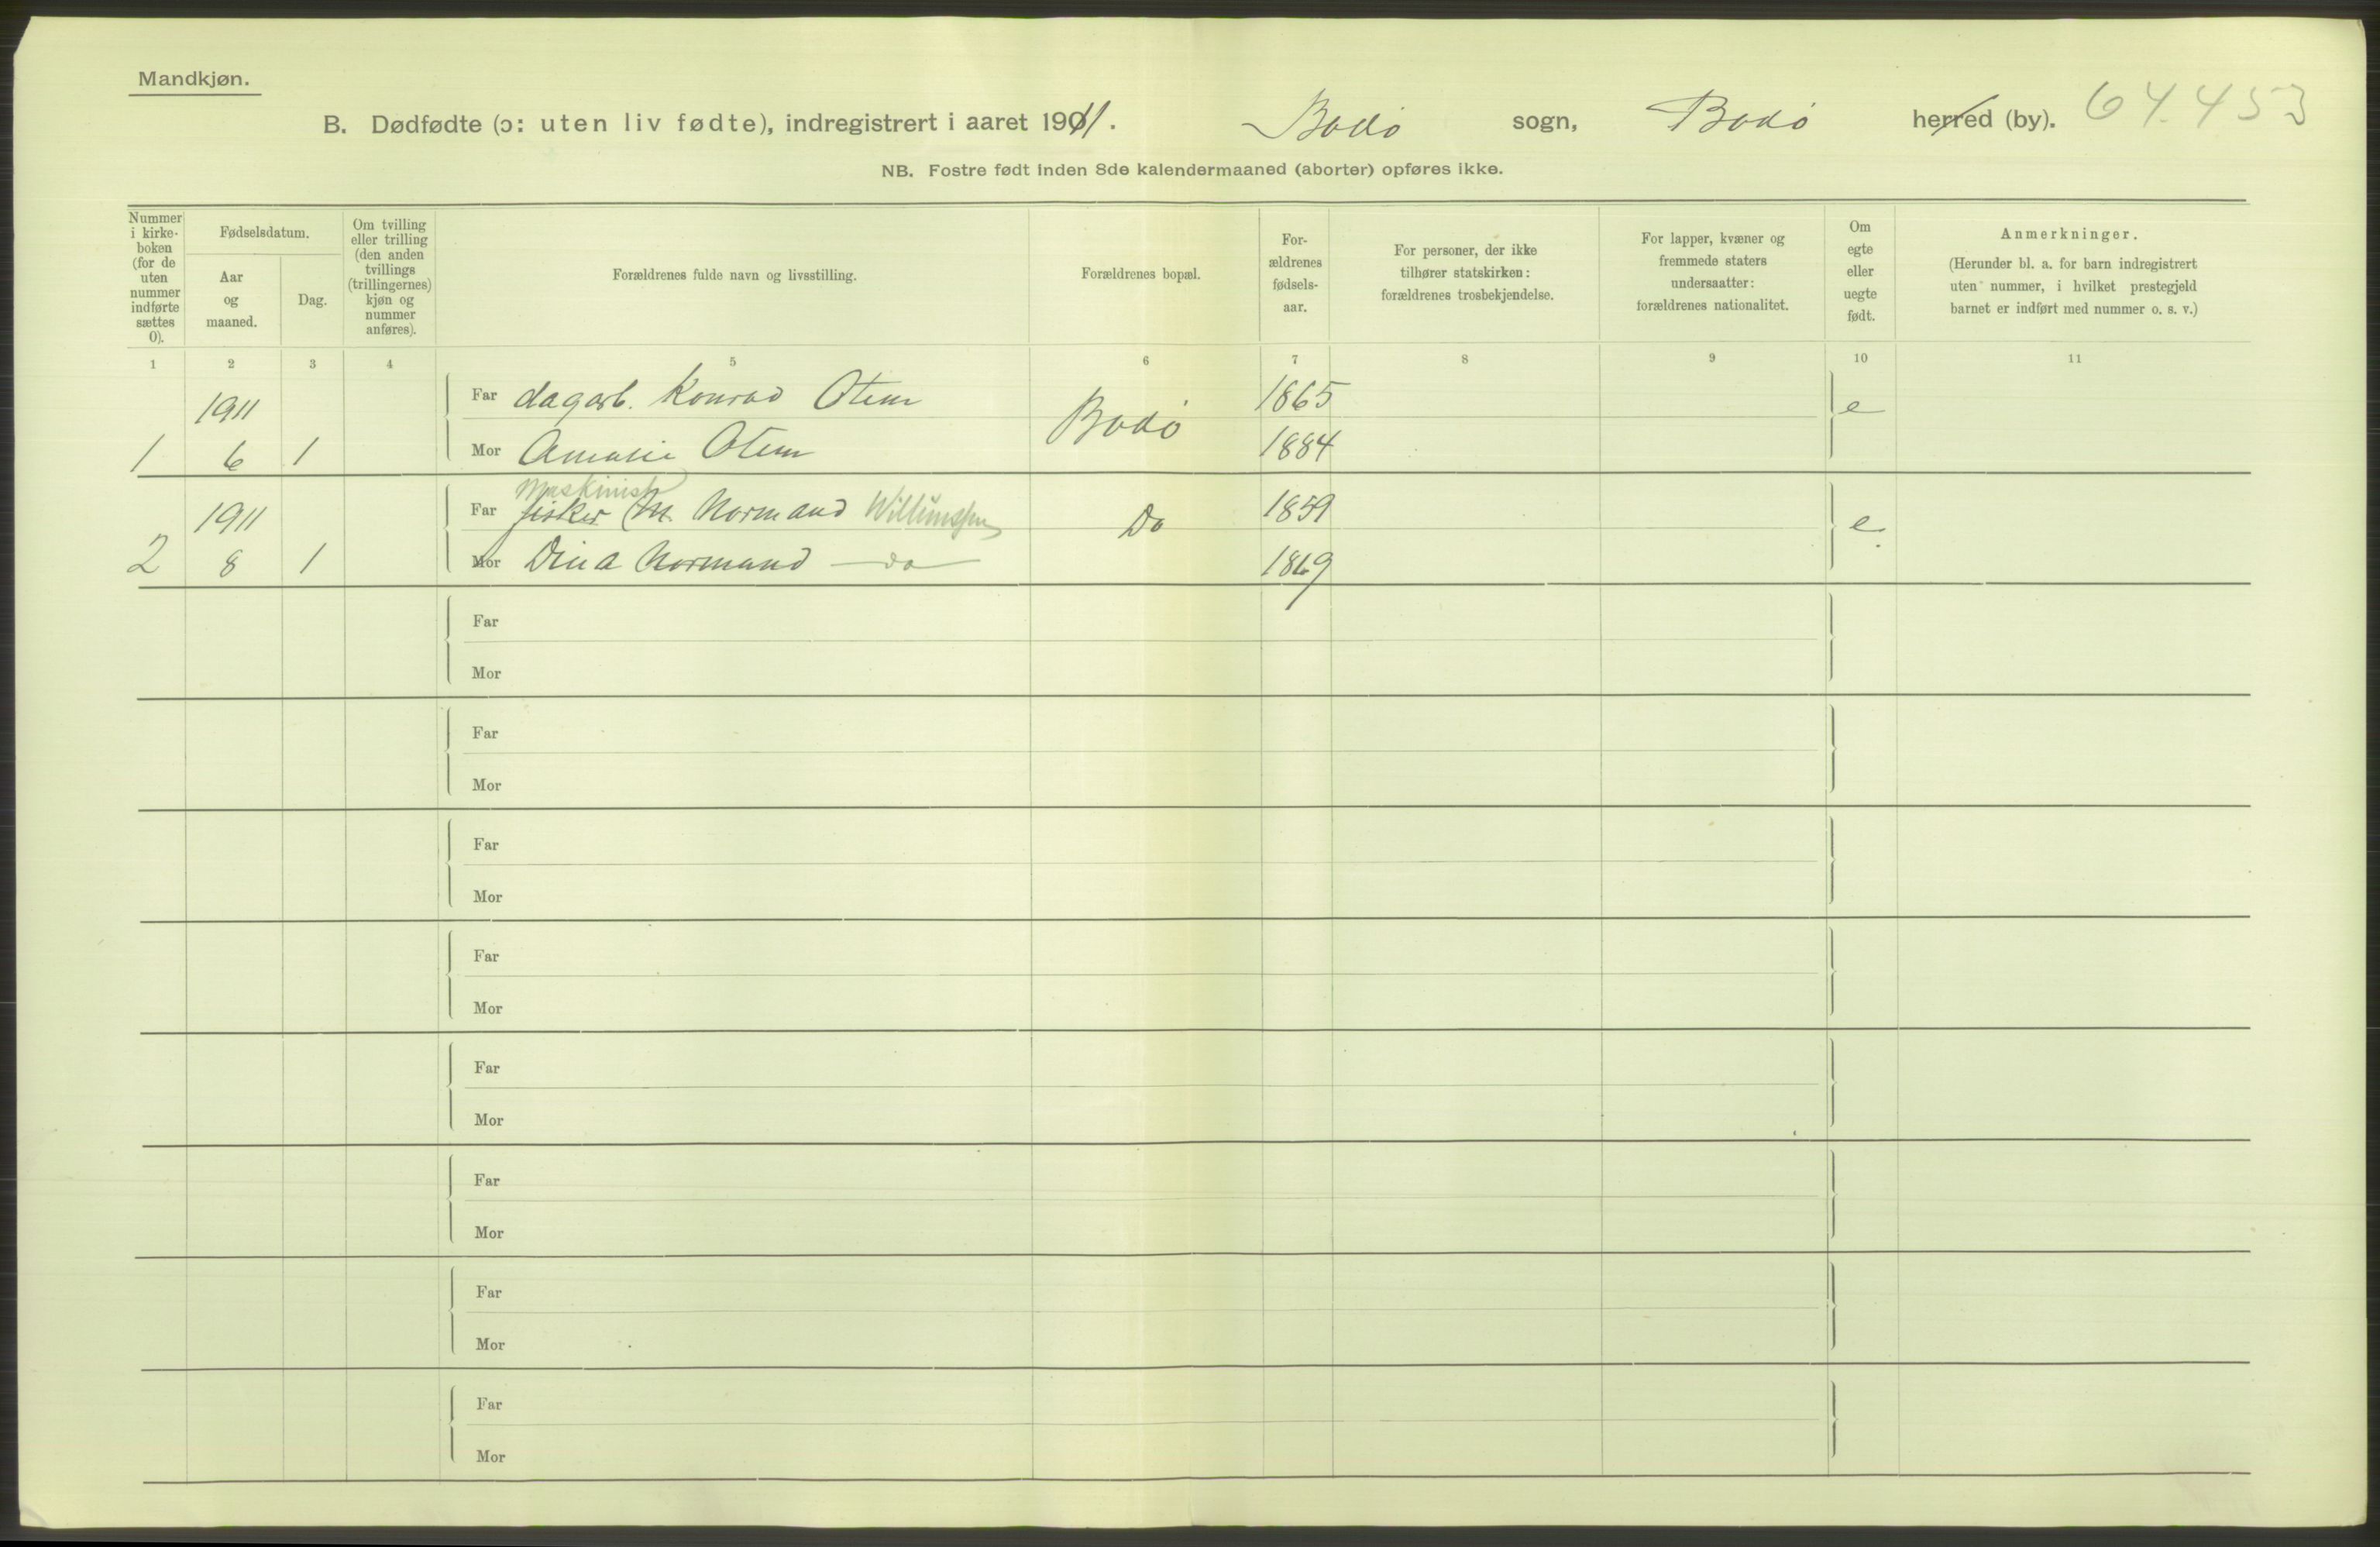 Mandkjøn.
B. Dødfødte (ɔ: uten liv fødte), indregistrert i aaret 1911. Bodø sogn, Bodø herred (by). 64.453
NB. Fostre født inden 8de kalendermaaned (aborter) opføres ikke.
Nummer i kirke- boken (for de uten nummer indførte sættes 0).
Fødselsdatum.
Aar og maaned.
Dag.
Om tvilling eller trilling (den anden tvillings (trillingernes) kjøn og nummer anføres).
Forældrenes fulde navn og livsstilling.
Forældrenes bopæl.
For- ældrenes fødsels- aar.
For personer, der ikke tilhører statskirken: forældrenes trosbekjendelse.
For lapper, kvæner og fremmede staters undersaatter: forældrenes nationalitet.
Om egte eller uegte født.
Anmerkninger.
(Herunder bl. a. for barn indregistrert uten nummer, i hvilket prestegjeld barnet er indført med nummer o. s. v.)
1 2 3 4 5 6 7 8 9 10 11
1911 Far dagarb. Konrad Bodø 1865 e
1 6 1 Mor Amalie 1884
Maskinist
1911 Far fisker M. Normand Do 1859 e.
2 8 1 Mor Dina Normand — do — 1869
Far
Mor
Far
Mor
Far
Mor
Far
Mor
Far
Mor
Far
Mor
Far
Mor
Far
Mor